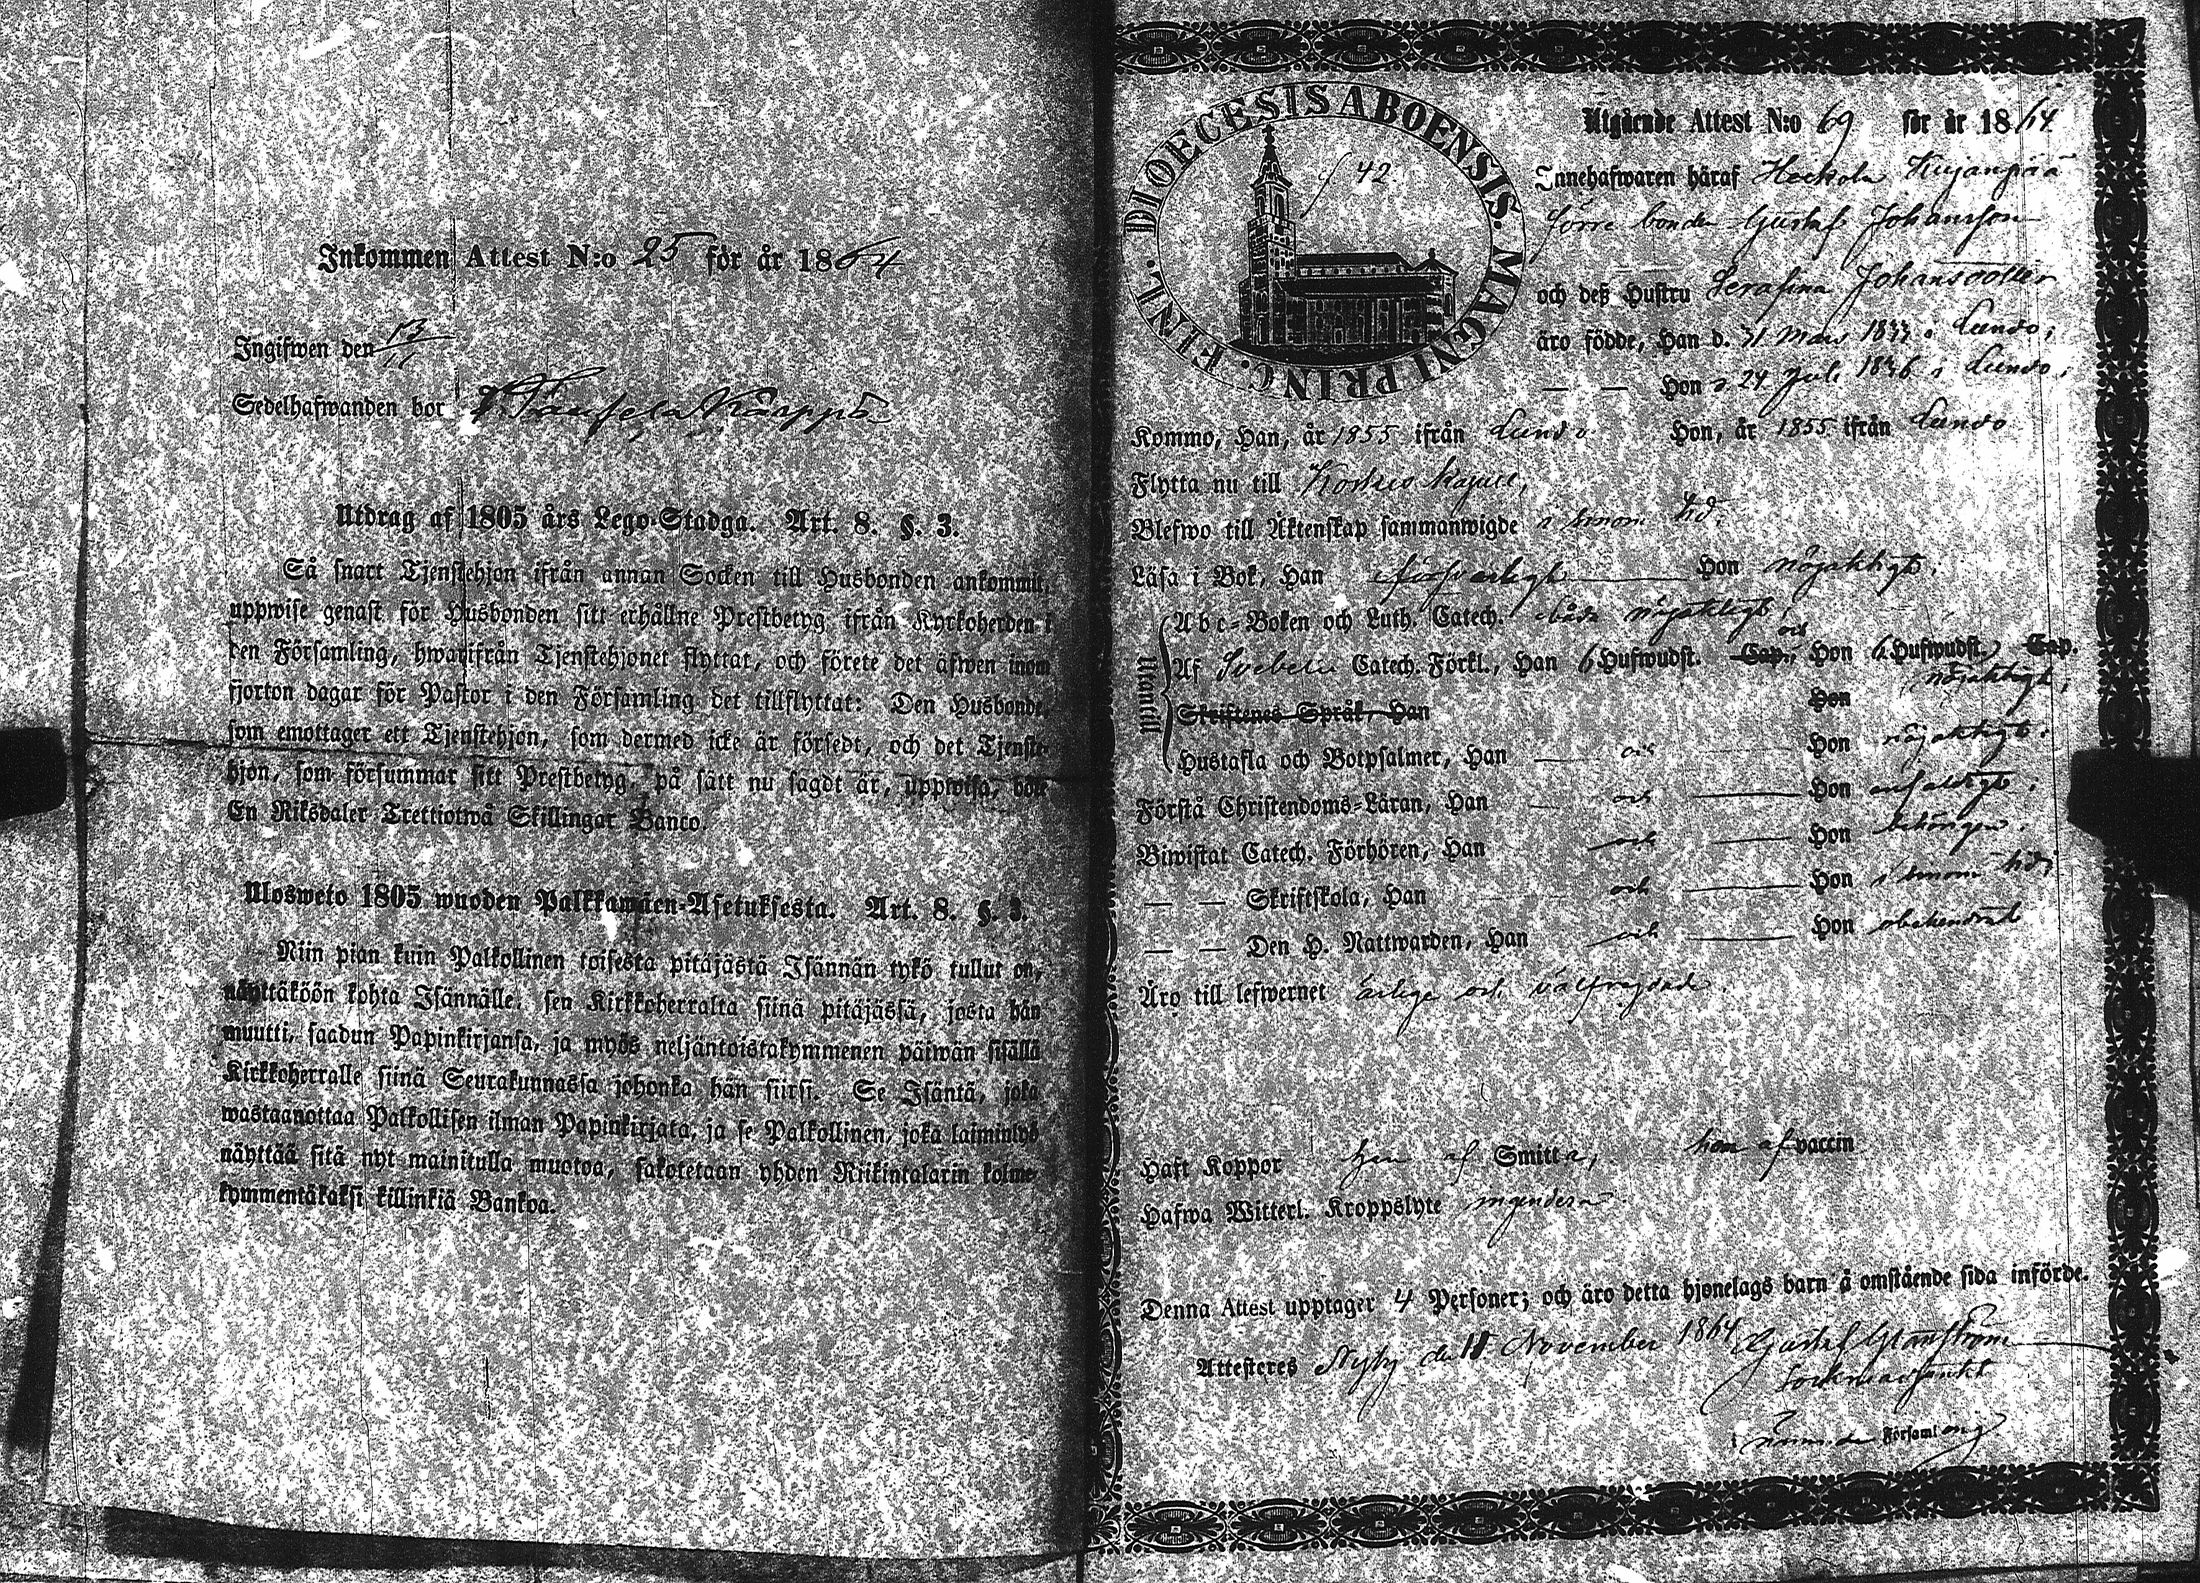 Inkommen Attest N:o 25 för år 1864
Ingifwen den 13/11
Sedelhafwanden bor Karppå
Utdrag af 1805 års Lego-Stadga. Art. 8. §. 3.
Så snart Tjenstehjon ifrån annan Socken till Husbonden ankommit,
uppwise genast för Husbonden sitt erhållne Prestbetyg ifrån Kyrkoherden i
den Församling, hwarifrån Tjenstehjonet flyttat, och förete det äfwen inom
fjorton dagar för Pastor i den Församling det tillflyttat: Den Husbonde,
som emottager ett Tjenstehjon, som dermed icke är försedt, och det Tjenste-
hjon, som försummar sitt Prestbetyg, på sätt nu sagdt är, uppwisa, böte
En Riksdaler Trettiotwå Skillingar Banco.
Ulosweto 1805 wuoden Palkkawäen-Asetuksesta. Art. 8. §. 3.
Niin pian kuin Palkollinen toisesta pitäjästä Isännän tykö tullut on,
näyttäköön kohta Isännälle, sen Kirkkoherralta siinä pitäjässä, josta hän
muutti, saadun Papinkirjansa, ja myös neljäntoistakymmenen päiwän sisällä
Kirkkoherralle siinä Seurakunnassa johonka hän siirsi. Se Isäntä, joka
wastaanottaa Palkollisen ilman Papinkirjata, ja se Palkollinen, joka laiminlyö
näyttää sitä nyt mainitulla muotoa, sakotetaan yhden Riikintalarin kolme-
kymmentäkaksi killinkiä Bankoa.
DIOECESIS ABOENSIS. MAGNI PRINC. FINL.
42
Utgående Attest N:o 69 för år 1864
Innehafwaren häraf Heikola Kujanpää
förre bonden Gustaf Johansson
och deß Hustru Serafina Johansdotter
äro födde, Han d. 31 Mars 1833 i Lundo;
— — Hon d 24 Juli 1836 i Lundo;
Kommo, Han, år 1855 ifrån Lundo Hon, år 1855 ifrån Lundo
Flytta nu till Koskis Kapell,
Blefwo till Äktenskap sammanwigde i sinom tid.
Läsa i Bok, Han försvarligt Hon nöjaktigt.
Utantill
Abc-Boken och Luth. Catech. båda nöjaktigt;
Af Svebelii Catech. Förkl., Han 6 Hufwudst. Cap., och Hon 6 Hufwudst. Cap.
nöjaktigt;
Skriftenes Språk, Han Hon
Hustafla och Botpsalmer, Han — och — Hon nöjaktigt.
Förstå Christendoms-Läran, Han — och — Hon enfaldigt;
Biwistat Catech. Förhören, Han och — Hon behörigen.
— — Skriftskola, Han och — Hon i sinom tid;
— — Den H. Nattwarden, Han och — Hon obehindrad
Äro till lefwernet ärlige och välfrejdade.
Haft Koppor han af Smitta, hon af vaccin
Hafwa Witterl. Kroppslyte ingendera
Denna Attest upptager 4 Personer; och äro detta hjonelags barn å omstående sida införde.
Attesteras Nyby den 11 November 1864 Gustaf Granström
Sockneadjunkt
i Församling